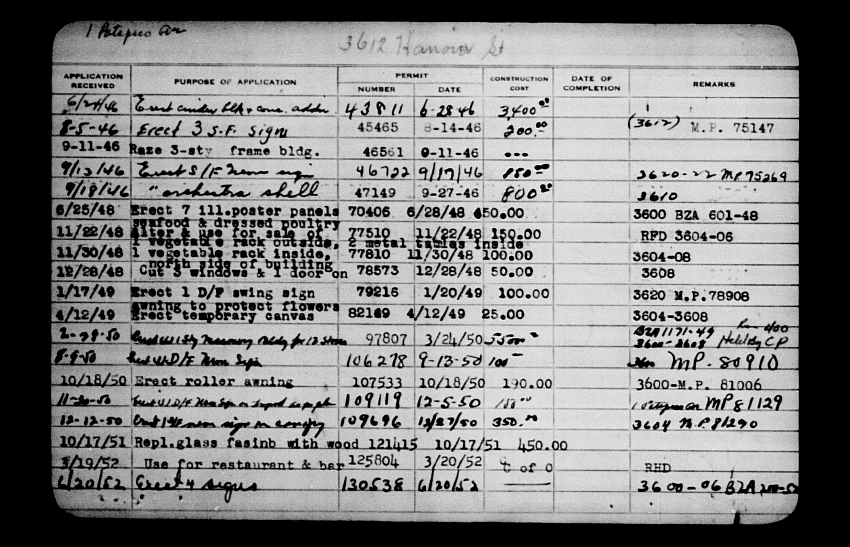 1 Patapsco Av
3612 Hanover St
APPLICATION RECEIVED PURPOSE OF APPLICATION PERMIT NUMBER DATE CONSTRUCTION COST DATE OF COMPLETION REMARKS
6/24/46 Erect cinder blk & conc. addn 43811 6-28 46 3400.00
8-5-46 Erect 3 S.F. signs 45465 8-14-46 200.00 (3612) M.P. 75147
9-11-46 Raze 3-sty frame bldg. 46561 9-11-46 ---
9/13/46 Erect S/F Neon sign 46722 9/17/46 150.00 3620-22 MP75269
9/18/46 " orchestra shell 47149 9-27-46 800.00 3610
6/25/48 Erect 7 ill.poster panels 70406 6/28/48 450.00 3600 BZA 601-48
seafood & dressed poultry
11/22/48 Alter & use for sale of 77510 11/22/48 150.00 RFD 3604-06
1 vegetable rack outside, 2 metal tables inside
11/30/48 1 vegetable rack inside, 77810 11/30/48 100.00 3604-08
north side of building
12/28/48 Cut 3 windows & 1 door on 78573 12/28/48 50.00 3608
1/17/49 Erect 1 D/F swing sign 79216 1/20/49 100.00 3620 M.P.78908
awning to protect flowers
4/12/49 Erect temporary canvas 82149 4/12/49 25.00 3604-3608
BZA1171-49
2-28-50 Masonry Bldg for 12 Stores 97807 3/24/50 5500 3600-3608 Held By CP
8-9-50 D/F Neon Sign 106278 9-13-50 100 3600 MP-80910
10/18/50 Erect roller awning 107533 10/18/50 190.00 3600-M.P. 81006
11-20-50 Erect D/F Neon Sign 109119 12-5-50 150.00 1 Patapsco Av MP81129
12-12-50 Erect neon sign on canopy 109696 12/27/50 350.00 3604 M.P.81290
10/17/51 Repl.glass fasinb with wood 121415 10/17/51 450.00
3/19/52 Use for restaurant & bar 125804 3/20/52 C of O RHD
6/20/52 Erect 4 signs 130538 6/20/52 —— 3600-06 BZA